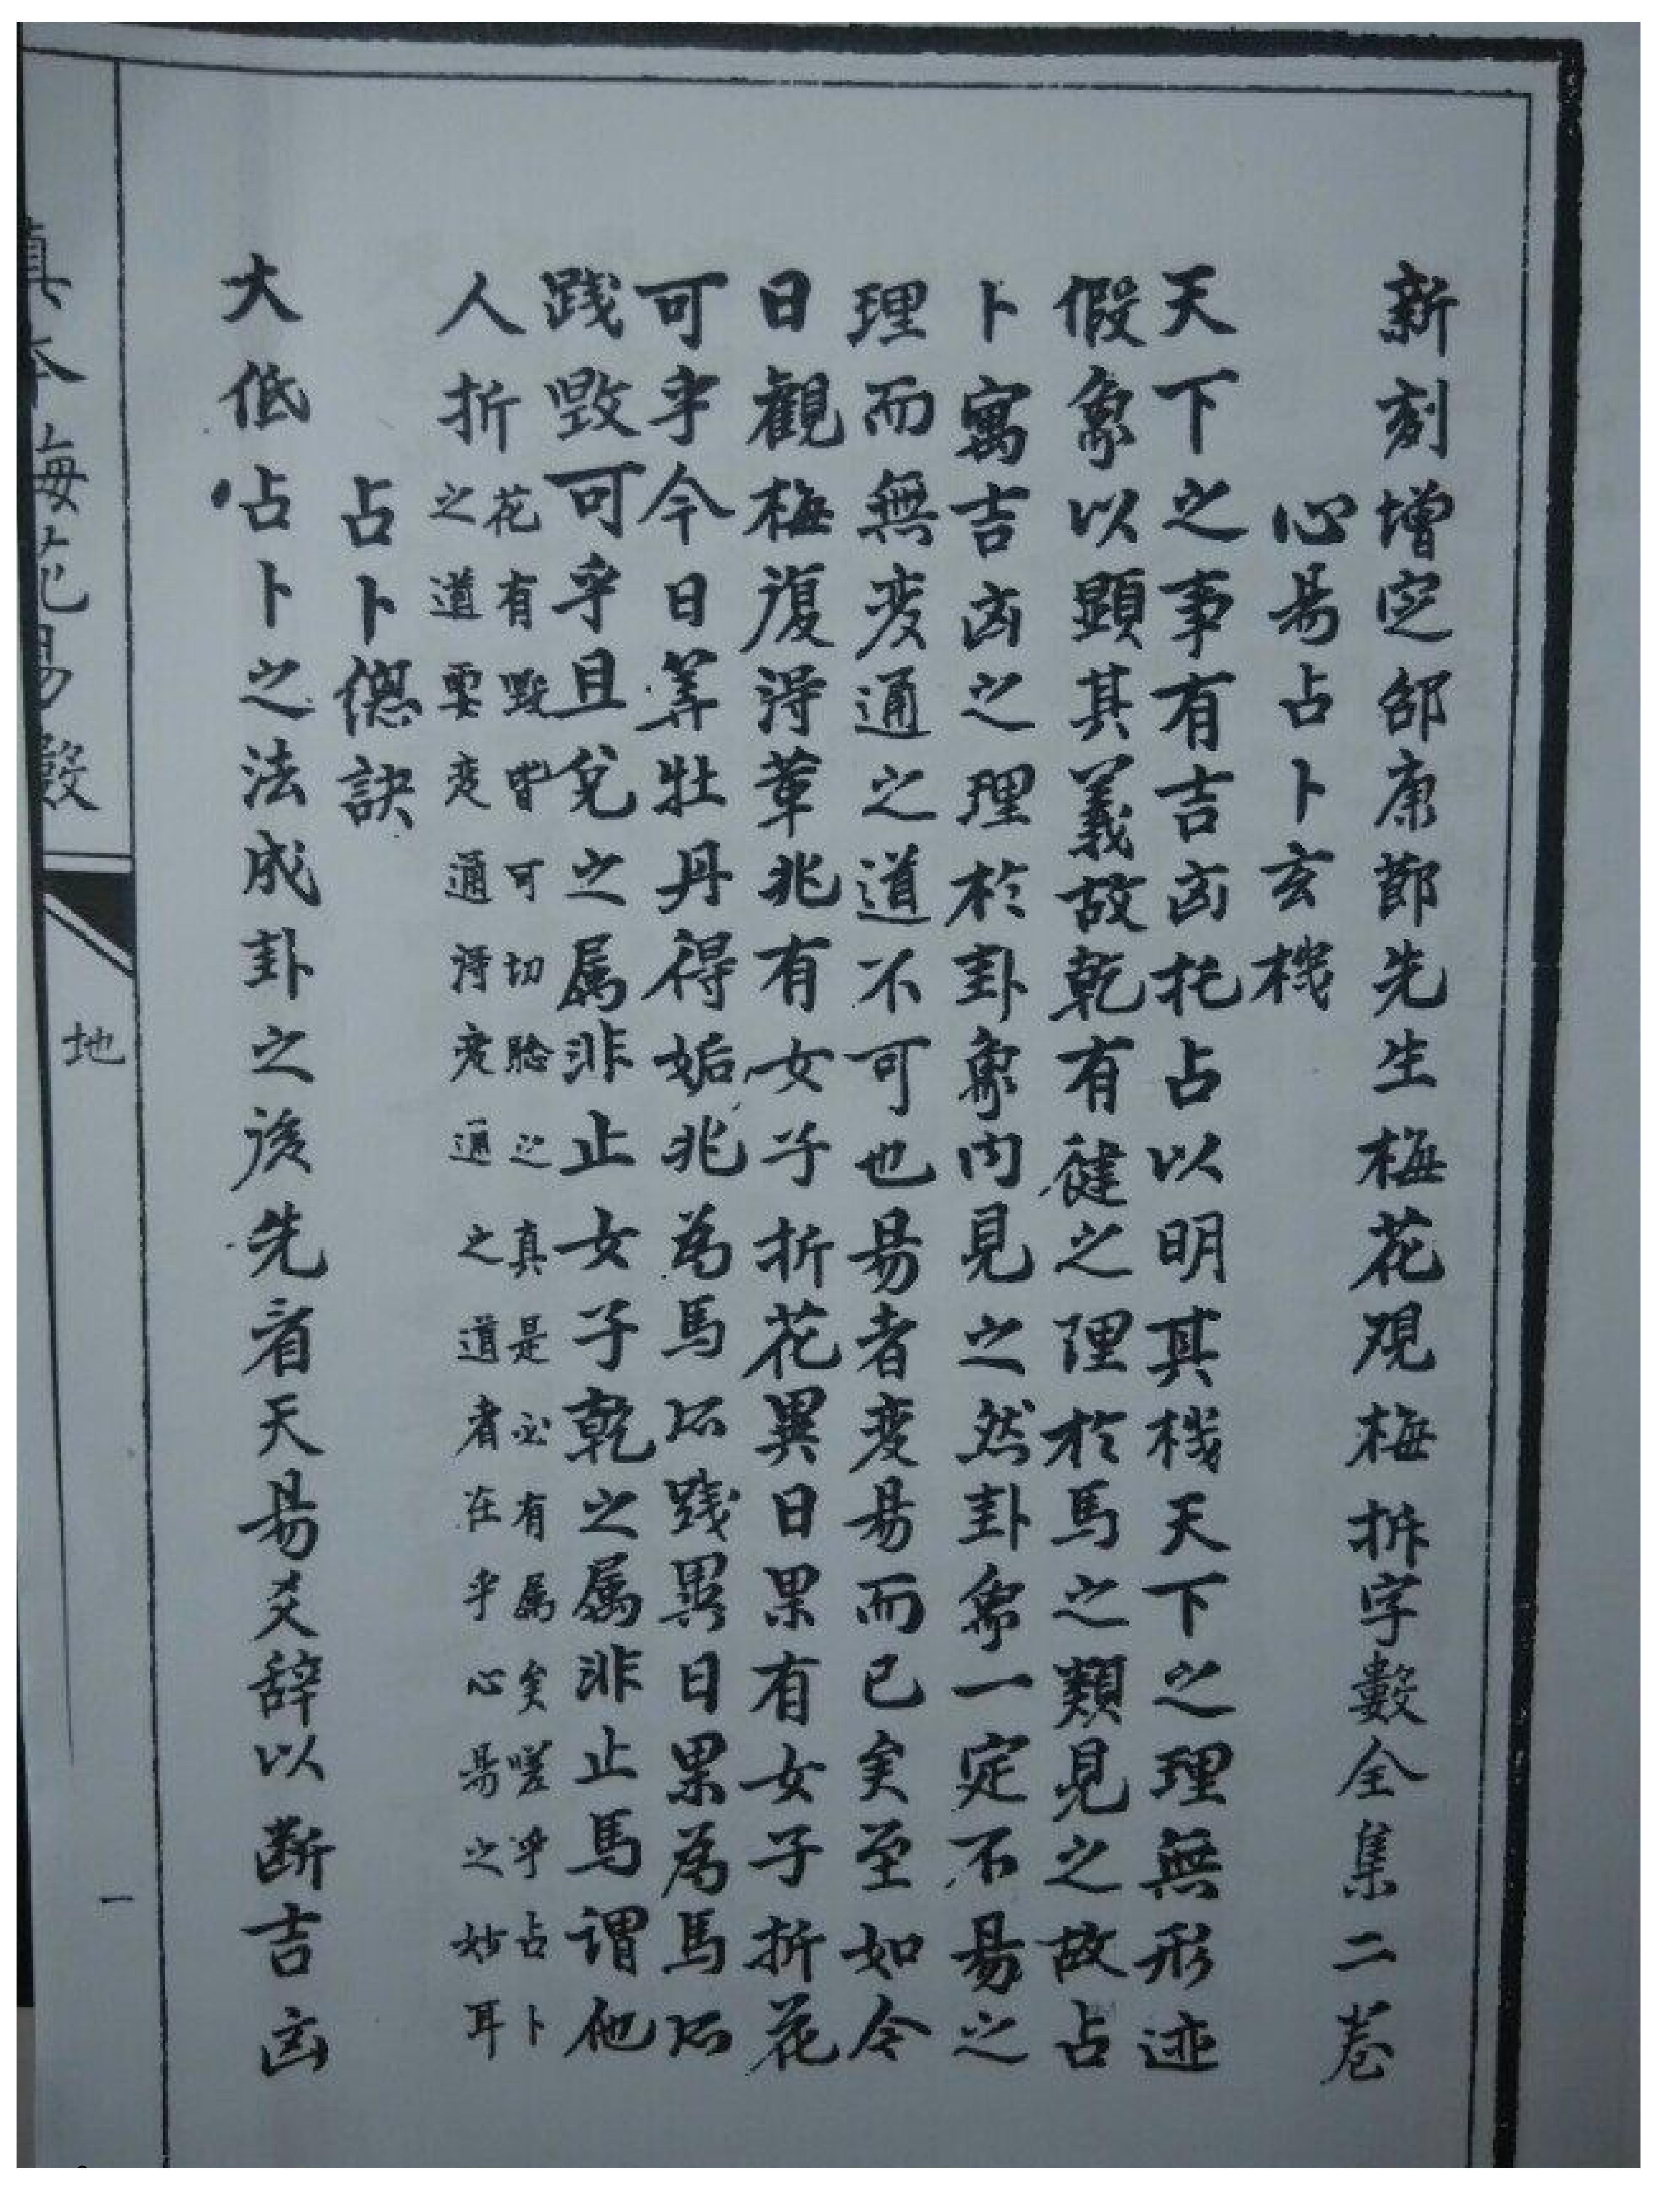 新刻增定邵康節先生梅花观梅拆字數全集二卷
心易占卜玄機
天下之事有吉凶托占以明其機天下之理無形迹
假象以顯其義故乾有健之理於馬之類見之故占
卜寓吉凶之理於卦象内見之然卦象一定不易之
理而無变通之道不可也易者变易而已矣至如今
日觀梅復得革兆有女子折花異日果有女子折花
可乎今日筭牡丹得姤兆為馬所踐異日果為馬所
踐毁可乎且兌之属非止女子乾之属非止馬謂他
人折花有毁皆可切驗之真是必有属矣嗟乎占卜
之道要变通得变通之道者在乎心易之妙耳
占卜總訣
大低占卜之法成卦之後先看天易爻辞以断吉凶
真本梅花易數
地
一